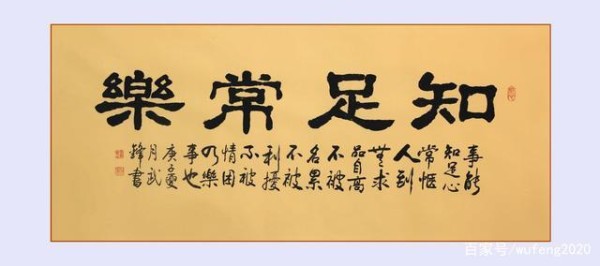 知足常樂
事能
知足心
常惬
人到
無求
品自高
不被
名累
不被
利擾
不被
情困
乃樂
事也
庚子夏
月武
鋒書
百家号/wufeng2020